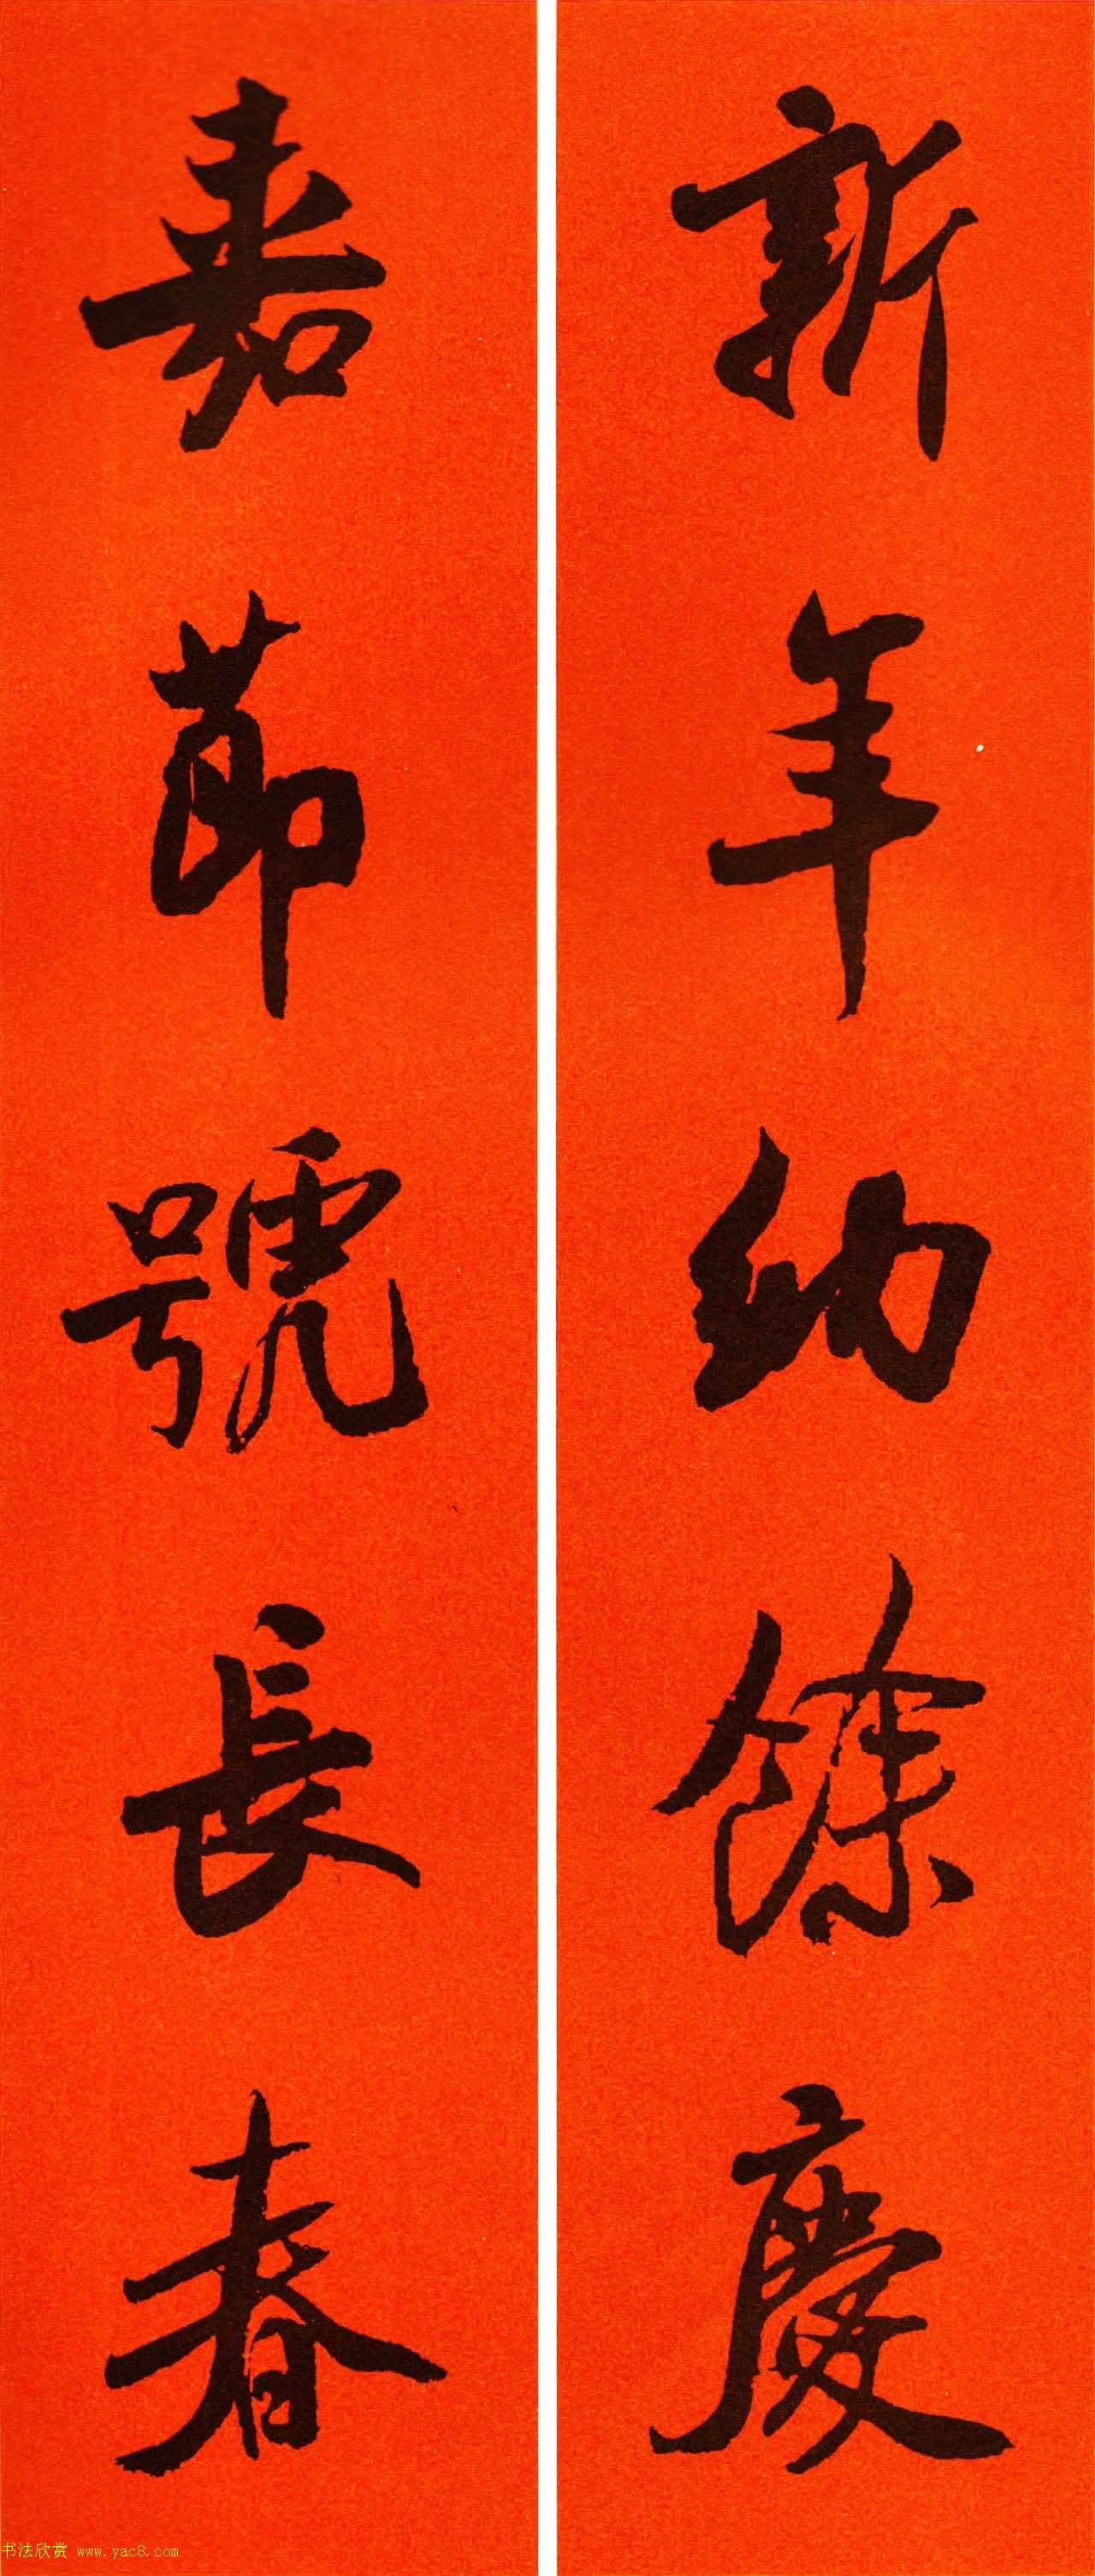 新年納餘慶
嘉節號長春
书法欣赏 www.yac8.com